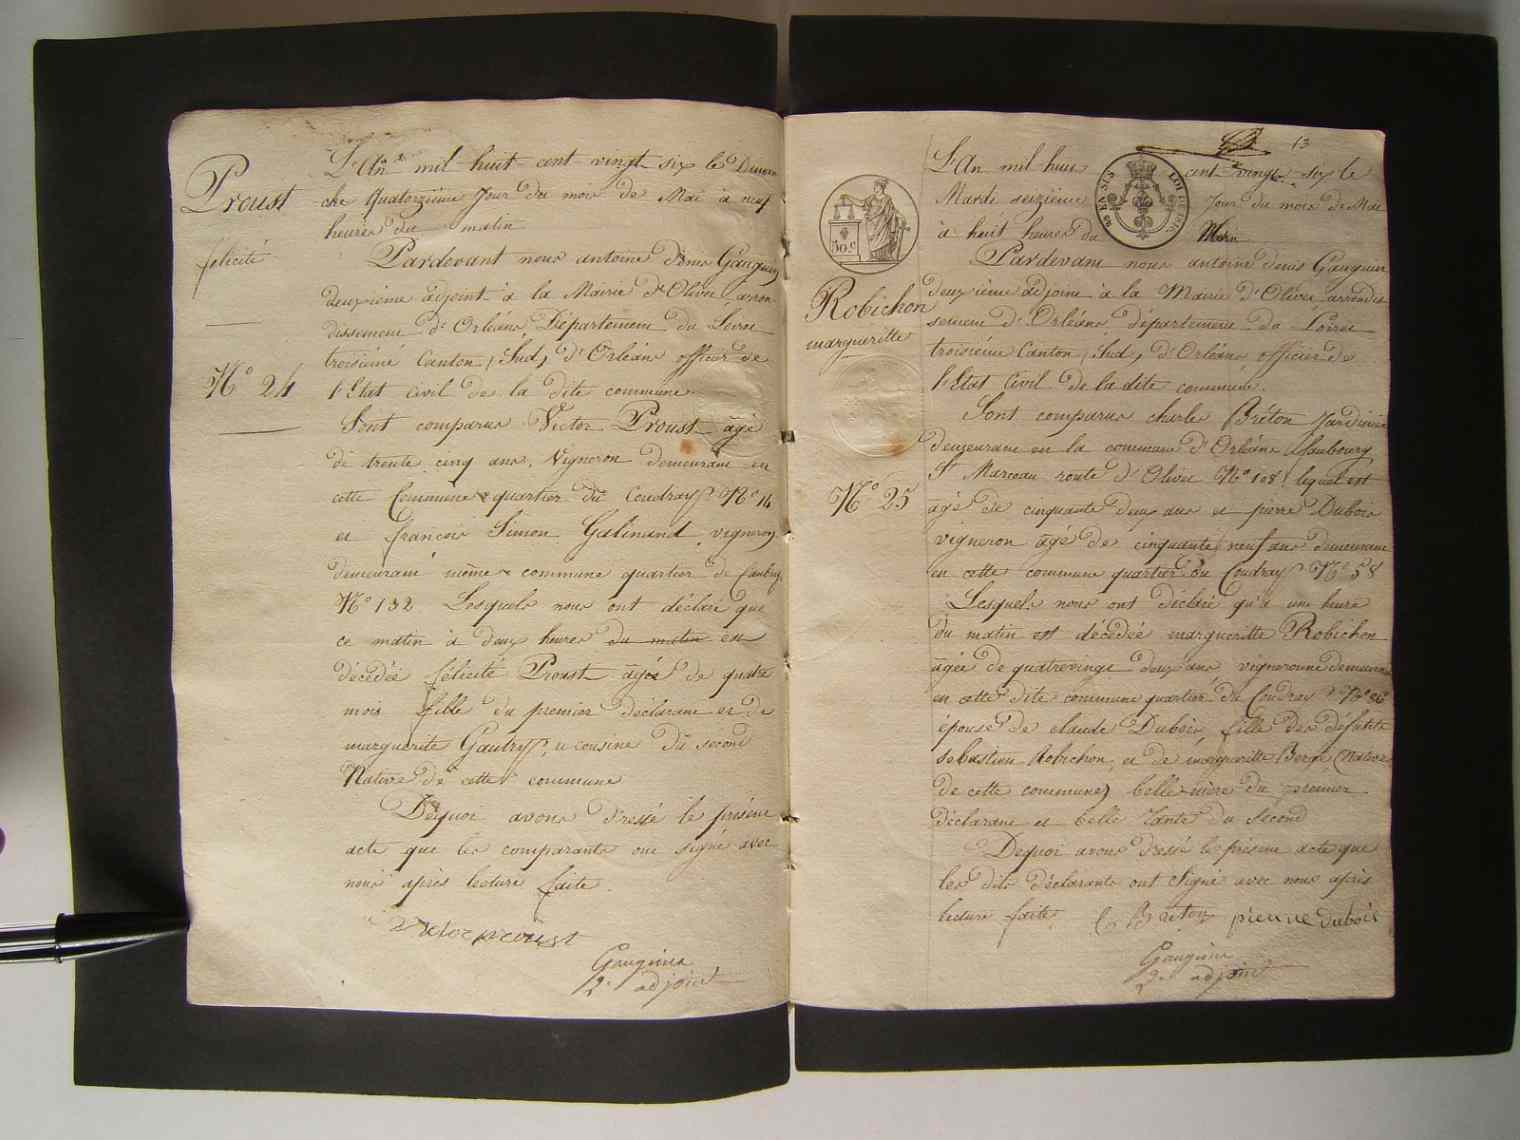 Proust
félicité
N° 24
L'An mil huit cent vingt six le Diman
che Quatorzième Jour du mois de Mai à neuf
heures du matin
Pardevant nous antoine denis Gauguin
deuxième adjoint à la Mairie d'Olivet arron
dissement d'Orléans, Département du Loiret
troisième Canton (Sud) d'Orléans officier de
l'Etat Civil de la dite commune.
Sont comparus Victor Proust agé
de trente cinq ans, Vigneron demeurant en
cette Commune quartier du Coudray N° 14
et françois Simon Galinand vigneron
demeurant même commune quartier de
N° 132 Lesquels nous ont déclaré que
ce matin à deux heures du matin est
décédée félicité Proust agée de quatre
mois fille du premier déclarant et de
marguerite Gautry, et cousine du second
Native de cette commune
Dequoi avons dressé le présent
acte que les comparants ont signé avec
nous après lecture faite.
Victor proust
Gauguin
2e adjoint
13
50 c
BEAUSIS
LOI
Robichon
margueritte
N° 25
L'An mil huit cent vingt six le
Mardi seizième Jour du mois de Mai
à huit heures du Matin
Pardevant nous antoine denis Gauguin
deuxième adjoint à la Mairie d'Olivet arrondis
sement d'Orléans, département du Loiret
troisième Canton (Sud) d'Orléans officier de
l'Etat Civil de la dite commune.
Sont comparus charles Bréton Jardinier
demeurant en la commune d'Orléans faubourg
St Marceau route d'Olivet N° 108 lequel est
agé de cinquante deux ans et pierre Dubois
vigneron agé de cinquante neuf ans demeurant
en cette commune quartier du Coudray N° 58
Lesquels nous ont déclaré qu'à une heure
du matin est décédée margueritte Robichon
agée de quatrevingt deux ans vigneronne demeurant
en cette dite commune quartier du Coudray N° 56
épouse de claude Dubois, fille des défunts
sebastien Robichon, et de margueritte Bergé (Native
de cette commune) belle-mère du premier
déclarant et belle Tante du second
Dequoi avons dressé le présent acte que
les dits déclarants ont signé avec nous après
lecture faite. C Bréton pierre dubois
Gauguin
2e adjoint